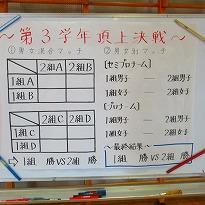 ～第３学年頂上決戦～
①男女混合マッチ
2組A 2組B
1組A
1組B
2組C 2組D
1組C
1組D
→1組 勝 VS 2組 勝
②男女別マッチ
[セミプロチーム]
1組男子 ― 2組男子
1組女子 ― 2組女子
[プロチーム]
1組男子 ― 2組男子
1組女子 ― 2組女子
～最終結果～
1組 勝 VS 2組 勝